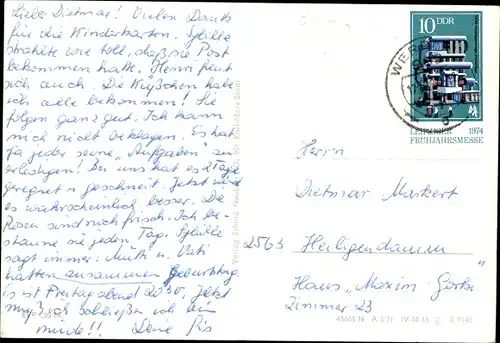 Liebe Dietmar! Vielen Dank
für die Winderkarten. Sybille
strahlte wie toll, daß sie Post
bekommen hatte. Henri freut
sich auch. Die Küßchen habe
ich alle bekommen! Sie
folgen ganz gut. Ich kann
mich nicht beklagen. Es hat
ja jeder seine „Aufgaben" zu
erledigen! Bei uns hat es 2 Tage
geregnet u. geschneit. Jetzt wird
es wahrscheinlich besser. Die
Rosen sind noch frisch. Ich be-
staune sie jeden Tag. Sybille
sagt immer: Mutti u. Vati
hatten zusammen Geburtstag.
Es ist Freitagabend 20³⁰. Jetzt
muß ich schließen ich bin
müde!! Deine
10 DDR
LEIPZIGER 1974
FRÜHJAHRSMESSE
Herrn
Dietmar Markert
2563 Heiligendamm
Haus „Maxim Gorki
Zimmer 23
A 3/71 IV-14-45